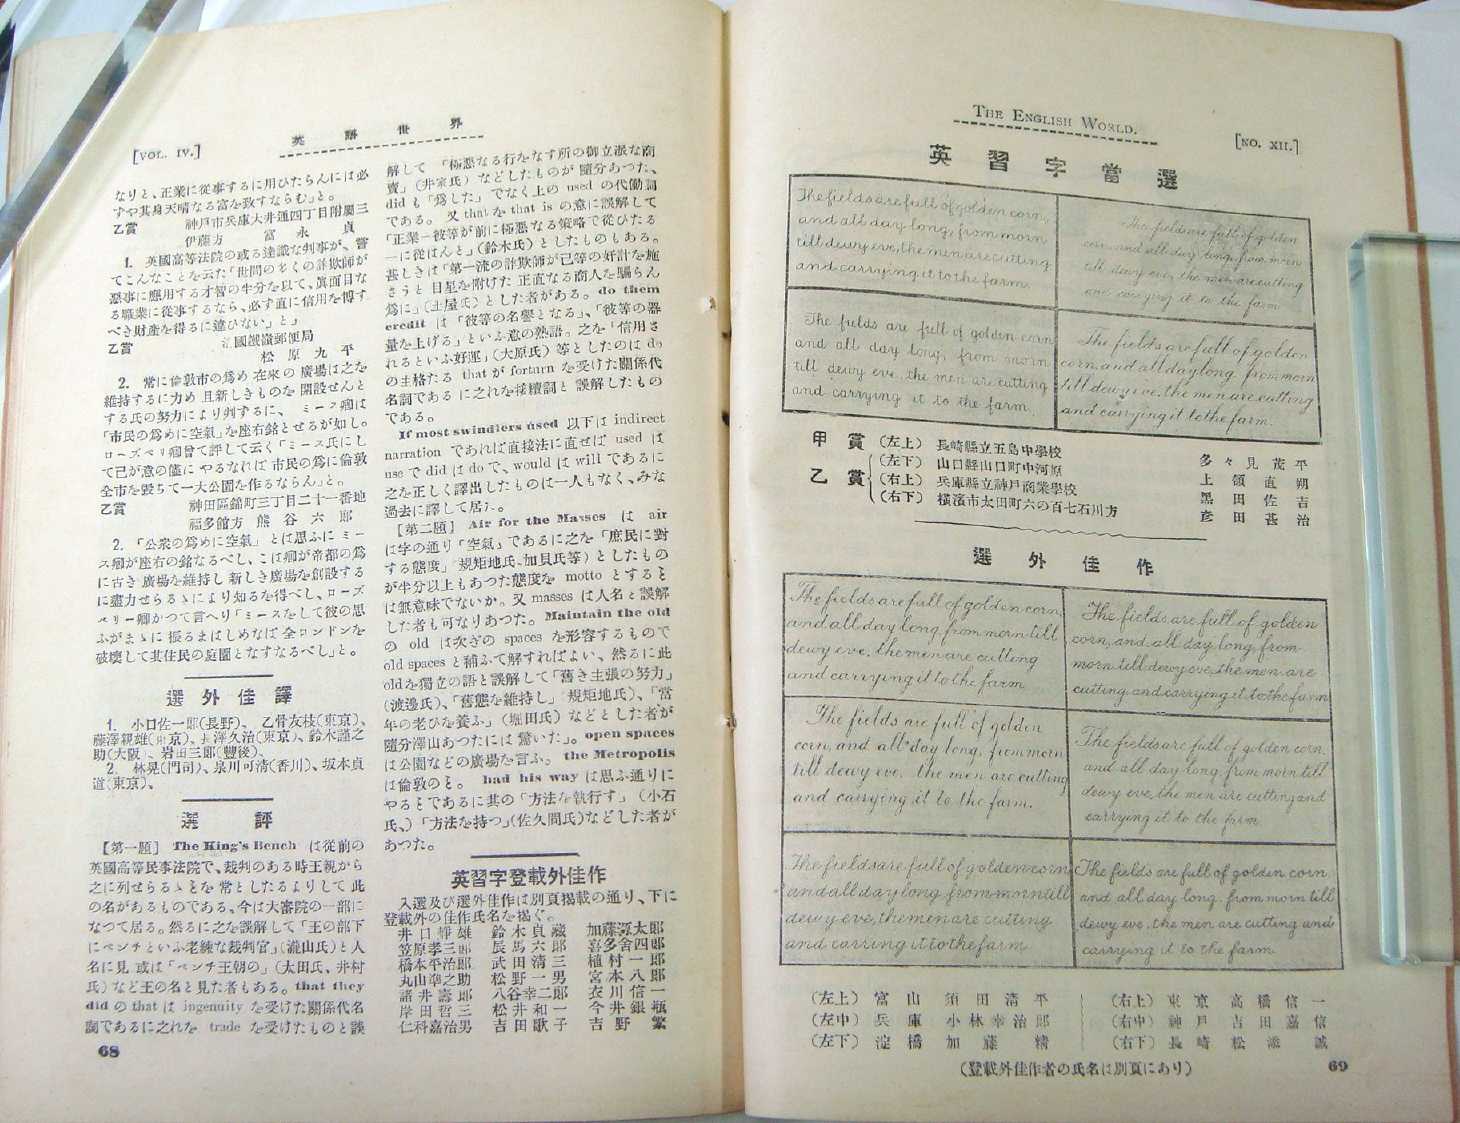 [VOL. IV.]
英語世界
なりと、正業に従事するに用ひたらんには必
ずや其身天晴なる富を致すならむ」と。
乙賞 神戸市兵庫大井通四丁目附屬三
伊藤方 富永貞
1. 英國高等法院の或る達識な判事が、嘗
てこんなことを云た「世間の多くの詐欺師が
惡事に應用する才智の半分を以て、眞面目な
る職業に從事するなら、必ず直に信用を博す
べき財産を得るに違ひない」と」
乙賞 鐵嶺郵便局
松原九平
2. 常に倫敦市の爲め在來の廣場は之を
維持するに力め且新しきものを開設せんと
する氏の努力により判ずるに、ミース卿は
「市民の爲めに空氣」を座右銘とせるが如し。
ローズベリ卿曾て評して云く「ミース氏にし
て己が意の儘にやるなれば市民の爲に倫敦
全市を毀ちて一大公園を作るならん」と。
乙賞 神田區錦町三丁目二十一番地
福多館方 熊谷六郎
2. 「公衆の爲めに空氣」とは思ふにミー
ス卿が座右の銘なるべし、こは卿が帝都の爲
に古き廣場を維持し新しき廣場を創設する
に盡力せらるゝにより知るを得べし、ローズ
ベリー卿かつて言へり「ミースをして彼の思
ふがまゝに振るまはしめなば全ロンドンを
破壞して其住民の庭園となすなるべし」と。
選外佳譯
1. 小口佐一郎(長野)、乙骨友枝(東京)、
藤澤親雄(東京)、長澤久治(東京)、鈴木謹之
助(大阪)、岩田三郎(豐後)、
2. 林晃(門司)、泉川可淸(香川)、坂本貞
道(東京)、
選評
【第一題】 The King's Bench は從前の
英國高等民事法院で、裁判のある時王親から
之に列せらるゝとを常としたるよりして此
の名があるものである、今は大審院の一部に
なつて居る。然るに之を誤解して「王の部下
にベンチといふ老練な裁判官」(瀧山氏)と人
名に見或は「ベンチ王朝の」(太田氏、井村
氏)など王の名と見た者もある。that they
did の that は ingenuity を受けた關係代名
詞であるに之れを trade を受けたものと誤
68
解して「極惡なる行をなす所の御立派な商
賣」(井家氏)などしたものが隨分あつた、
did も「爲した」でなく上の used の代動詞
である。又 that を that is の意に誤解して
「正業―彼等が前に極惡なる策略で從ひたる
―に從はんと」(鈴木氏)としたものもある。
甚しきは「第一流の詐欺師が己等の奸計を施
さうと目星を附けた正直なる商人を騙らん
爲に」(土屋氏)とした者がある。do them
credit は「彼等の名譽となる」、「彼等の器
量を上げる」といふ意の熟語。之を「信用さ
れるといふ好運」(大原氏)等としたのは do
の主格たる that が forturn を受けた關係代
名詞であるに之れを接續詞と誤解したもの
である。
If most swindlers used 以下は indirect
narration であれば直接法に直せば used は
use で did は do で、would は will であるに
之を正しく譯出したものは一人もなく、みな
過去に譯して居た。
【第二題】 Air for the Masses は air
は字の通り「空氣」であるに之を「庶民に對
する態度」(規矩地氏、加貝氏等)としたもの
が半分以上もあつた態度を motto とすると
は無意味でないか。又 masses は人名と誤解
した者も可なりあつた。Maintain the old
の old は次ぎの spaces を形容するもので
old spaces と補ふて解すればよい、然るに此
old を獨立の語と誤解して「舊き主張の努力」
(渡邊氏)、「舊態を維持し」(規矩地氏)、「當
年の老ひを養ふ」(堀田氏)などとした者が
隨分澤山あつたには驚いた」。open spaces
は公園などの廣場を言ふ。the Metropolis
は倫敦のと。had his way は思ふ通りに
やるとであるに其の「方法を執行す」(小石
氏、)「方法を持つ」(佐久間氏)などした者が
あつた。
英習字登載外佳作
入選及び選外佳作は別頁揭載の通り、下に
登載外の佳作氏名を揭ぐ。
井口靜雄 鈴木貞藏 加藤彌太郎
笠原孝三郎 辰馬六郎 喜多舍四郎
橋本平治郎 武田淸三 植村一郎
丸山準之助 松野一男 宮本八郎
諸井壽郎 八谷幸二郎 衣川信一
岸田哲三 松井和一 今井銀瓶
仁科嘉治男 吉田歌子 吉野繁
THE ENGLISH WORLD.
[NO. XII.]
英習字當選
The fields are full of golden corn,
and all day long, from morn
till dewy eve, the men are cutting
and carrying it to the farm.
The fields are full of golden
corn, and all day long, from morn
till dewy eve, the men are cutting
and carrying it to the farm.
The fields are full of golden corn
and all day long, from morn
till dewy eve, the men are cutting
and carrying it to the farm.
The fields are full of golden
corn, and all day long, from morn
till dewy eve, the men are cutting
and carrying it to the farm.
甲賞 (左上) 長崎縣立五島中學校 多々見茂平
乙賞 (左下) 山口縣山口町中河原 上領直朔
(右上) 兵庫縣立神戸商業學校 黑田佐吉
(右下) 橫濱市太田町六の百七石川方 彦田甚治
選外佳作
The fields are full of golden corn,
and all day long, from morn till
dewy eve, the men are cutting
and carrying it to the farm
The fields are full of golden
corn, and all day long, from
morn till dewy eve, the men are
cutting and carrying it to the farm
The fields are full of golden
corn, and all day long, from morn
till dewy eve, the men are cutting
and carrying it to the farm.
The fields are full of golden corn,
and all day long, from morn till
dewy eve, the men are cutting and
carrying it to the farm
The fields are full of golden corn
and all day long from morn till
dewy eve, the men are cutting
and carrying it to the farm
The fields are full of golden corn
and all day long, from morn till
dewy eve, the men are cutting and
carrying it to the farm.
(左上) 富山 須田淸平 (右上) 東京 高橋信一
(左中) 兵庫 小林幸治郎 (右中) 神戸 吉田嘉信
(左下) 淀橋 加藤精 (右下) 長崎 松添誠
(登載外佳作者の氏名は別頁にあり)
69